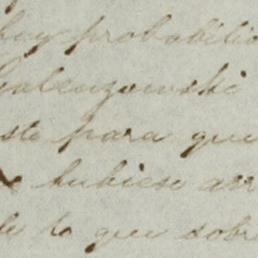 hay probabilid
Galenzowski
este para que
se hubiese arr
de lo que sobre